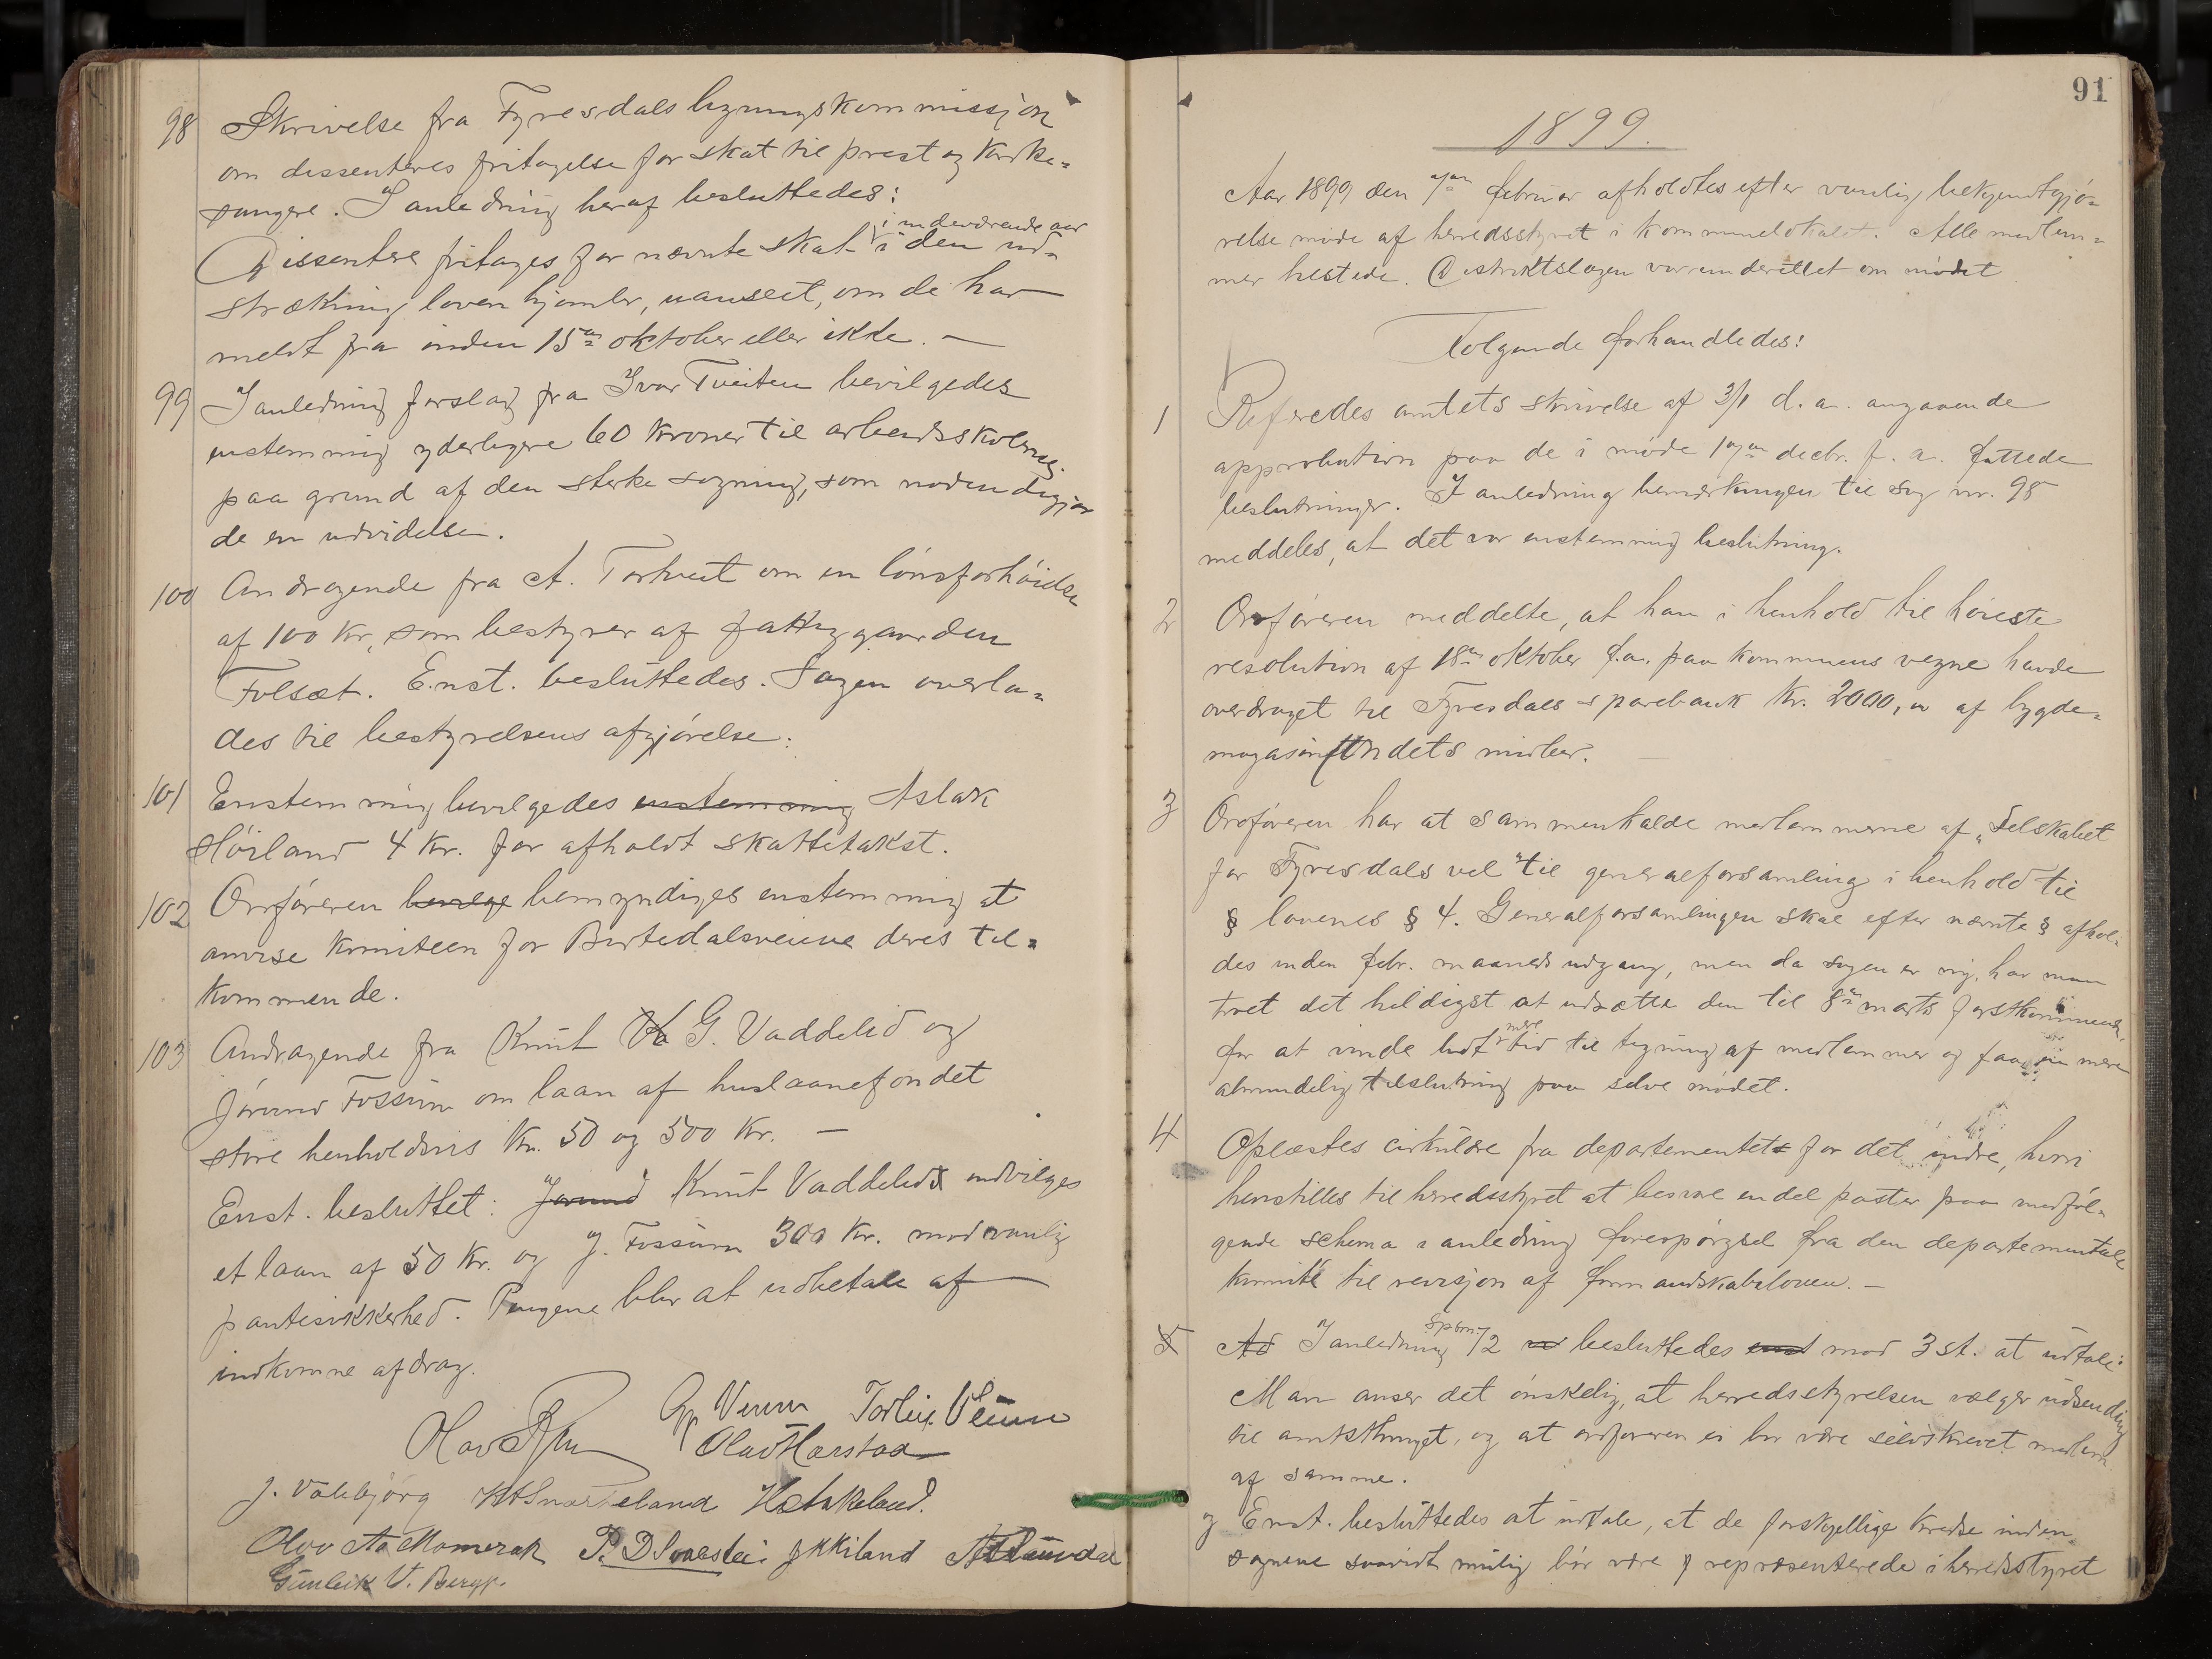 98 Skrivelse fra Fyresdals ligningskommissjon
om dissenteres fritagelse for skat til prest og kirke=
sangere. I anledning heraf besluttedes:
i indeværende aar
Dissentere fritages for nævnte skat i den ud=
strækning loven hjemler, uanseet, om de har
meldt fra inden 15de oktober eller ikke. —
99 I anledning forslag fra Ivar Tveiten bevilgedes
enstemmig yderligere 60 kroner til arbeidsskolerne,
paa grund af den sterke søgning, som nødendiggjor
de en udvidelse.
100 Andragende fra A. Torkveit om en lønsforhøidse
af 100 kr, som bestyrer af fattiggaarden
Folsæt. Enst. besluttedes. Sagen overla=
des til bestyrelsens afgjørelse:
101 Enstemmig bevilgedes enstemmig Aslak
Høiland 4 kr. for afholdt skattetakst.
102 Orføreren bevilge bemyndiges enstemmig at
anvise komiteen for Birtedalsveiene deres til=
kommende.
103 Andragende fra Knut G. Vaddelid og
Jørund Fossum om laan af huslaanefondet
store henholdsvis Kr. 50 og 500 Kr. —
Enst. besluttet: Jørund Knut Vaddelid indvilges
et laan af 50 Kr. og J. Fossum 300 Kr. mod vanlig
pantesikkerhed. Pengene blir at udbetale af
indkomne afdrag.
Veum Torleiv Veum
Olav Harstad
J. Vallbjørg
Olav Aa Momrak
Gunleik V. Berge.
91
1899.
Aar 1899 den 7de februar afholdtes efter vanlig bekjendtgjø=
relse møde af herredsstyret i kommunelokalet. Alle medlem=
mer tilstede. Distriktslægen var underrettet om mødet
Følgende forhandledes:
1 Referedes amtets skrivelse af 3/1 d. a. angaaende
approbation paa de i møde 19de decbr. f. a. fattede
beslutninger. I anledning bemærkningen til sag nr. 98
meddeles, at det var enstemmig beslutning.
2 Orføreren meddelte, at han i henhold til høieste
resolution af 18de oktober f.a. paa kommunens vegne havde
overdraget til Fyresdals sparebank kr. 2000,00 af bygde=
magasinfondets midler. —
3 Ordføreren har at sammenkalde medlemmerne af „Selskabet
for Fyresdals vel" til generalforsamling i henhold til
§ lovenes § 4. Generalforsamlingen skal efter nævnte § afhol=
des inden febr. maaneds udgang, men da sagen er ny, har man
troet det heldigst at udsætte den til 8de marts førstkommende,
for at vinde lidt mere tid til tegning af medlemmer og faa en mere
almindelig tilslutning paa selve mødet.
4 Oplæstes cirkulære fra departementet for det indre, hvori
henstilles til herredsstyret at besvare endel poster paa medføl=
gende schema i anledning forespørgsel fra den departementale
komité til revisjon af formandskabsloven. —
5 Ad I anledning spørsm. 1/2 besluttedes enst mod 3 st. at udtale:
Man anser det ønskelig, at herredsstyrelsen vælger udsending
til amtsthinget, og at ordføreren ei bør være selvskrevet medlem
af samme.
og Enst. besluttedes at udtale, at de forskjellige kredse inden
sognene saavidt mulig bør være repræsenterede i herredsstyret